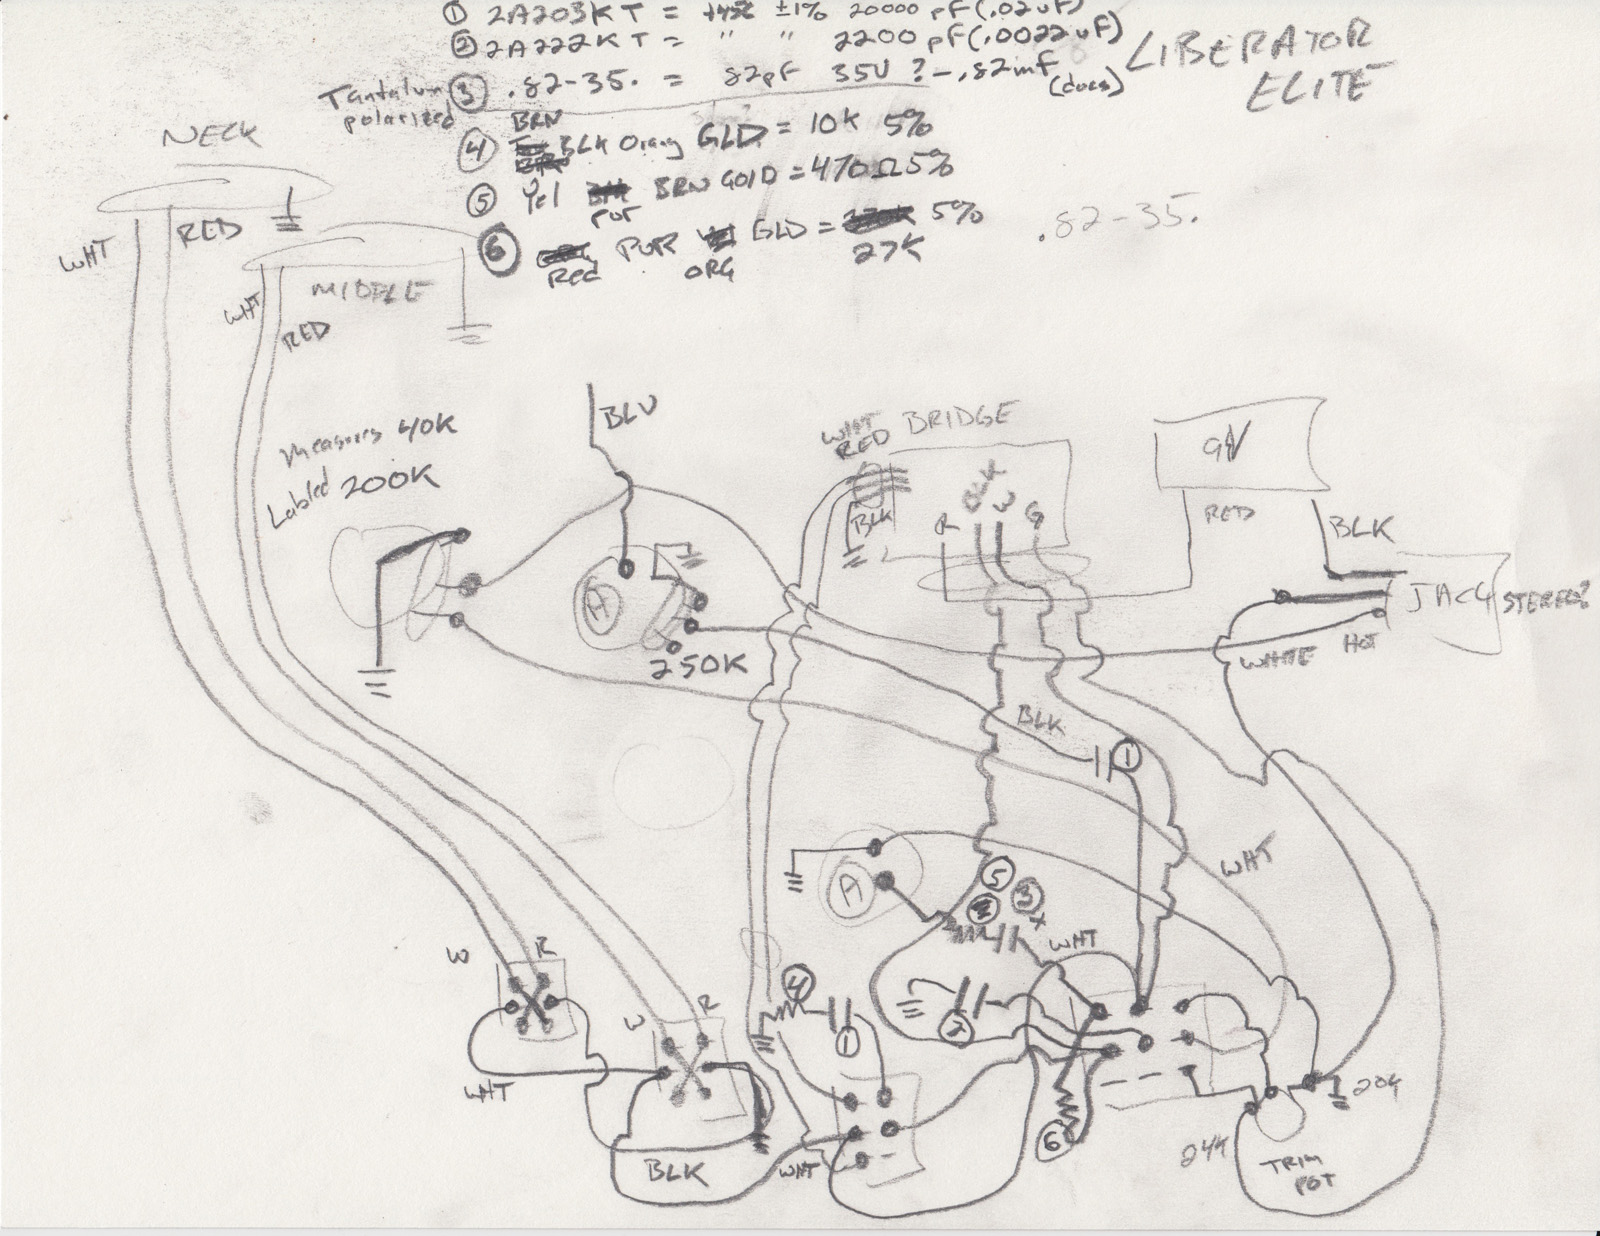 ① 2A203KT = ±1% 20000 pF (.02uF)
② 2A222KT = " " 2200 pF (.0022uF)
LIBERATOR
ELITE
Tantalum
polarized
③ .82-35. = 82pF 35V ? - .82mF
(docs)
BRN
④ BLK Orang GLD = 10K 5%
⑤ Yel BRN GOLD = 470Ω 5%
PUR
⑥ PUR GLD = 5%
Red ORG 27K
.82-35.
NECK
WHT RED
WHT MIDDLE
RED
Measures 40K
Labled 200K
BLU
WHT
RED BRIDGE
BLK
R BLK W G
9V
RED
BLK
JACK STEREO?
WHITE HOT
A
250K
BLK
①
WHT
A
⑤ ③
WHT
W R
W R
④
①
②
WHT
BLK
WHT
⑥
24K
TRIM
POT